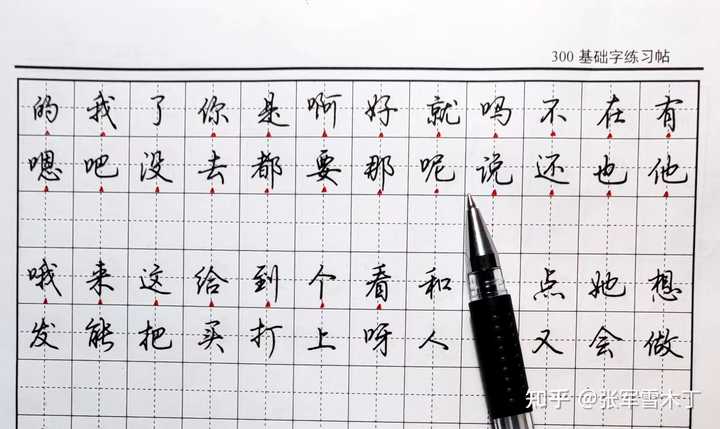 300 基础字练习帖
的我了你是啊好就吗不在有
嗯吧没去都要那呢说还也他
哦来这给到个看和点她想
发能把买打上呀人又会做
知乎 @张军雪木丁